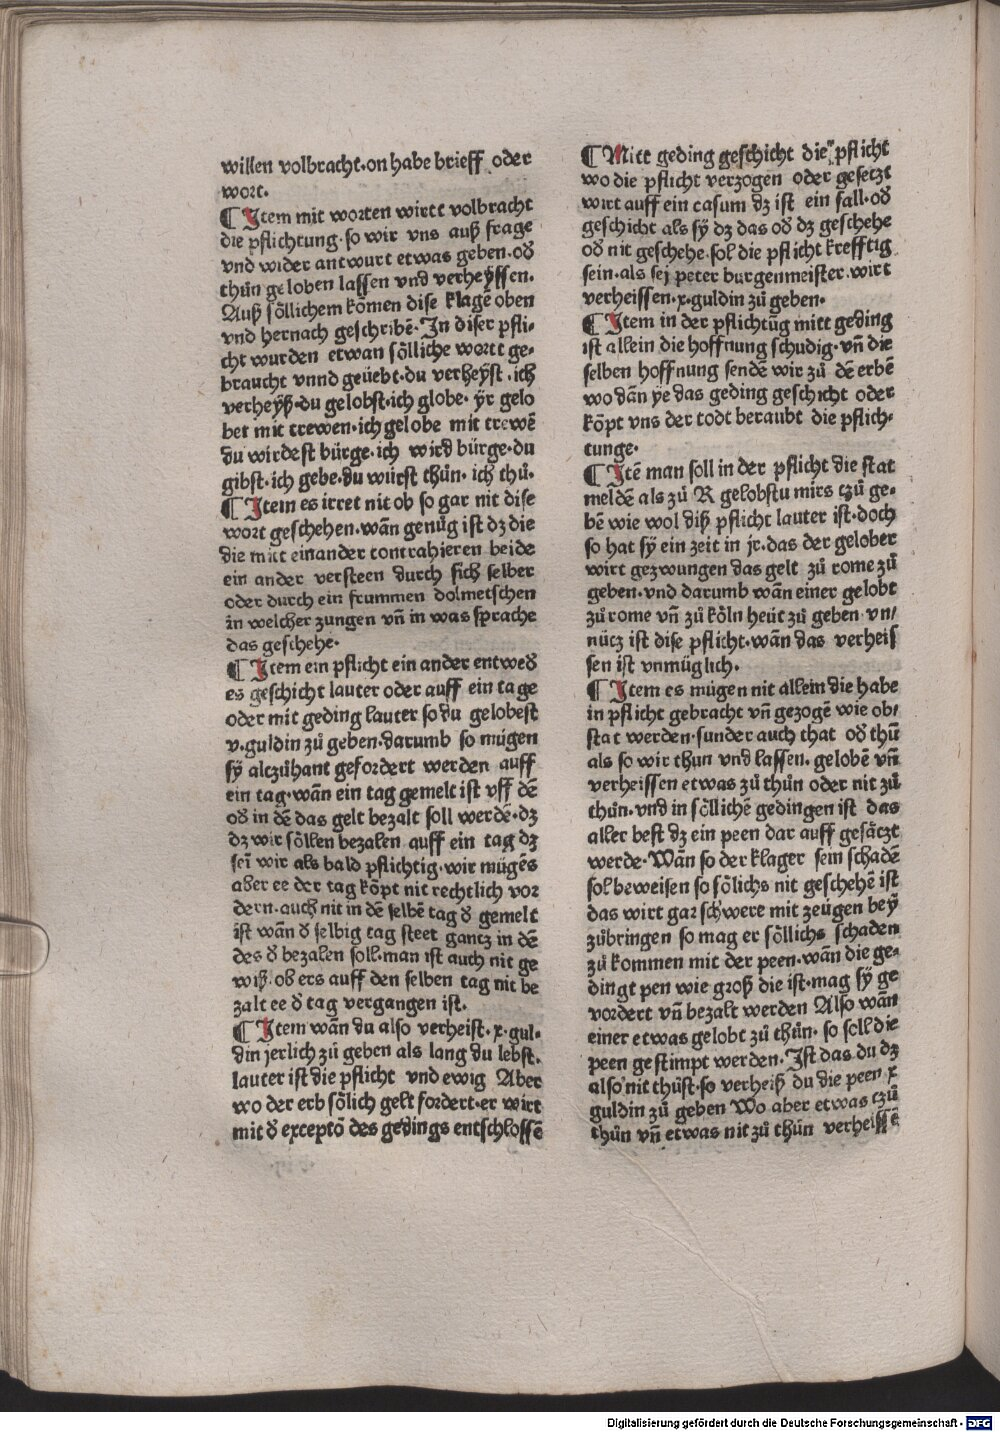 willen volbracht·on habe brieff oder
wort·
¶ Item mit worten wirtt volbracht
die pflichtung·so wir vns auß frage
vnd wider antwurt etwas geben·oď
thůn geloben lassen vnd verheÿssen·
Auß sőllichem kőmen dise klagē oben
vnd hernach geschribē·In diser pfli⸗
cht wurden etwan sőlliche wortt ge⸗
braucht vnnd geüebt·du verheÿst·ich
verheÿß·du gelobst·ich globe·ÿr gelo
bet mit trewen·ich gelobe mit trewē
du wirdest bürge·ich wird bürge·du
gibst·ich gebe·du würst thůn·ich thů·
¶ Item es irret nit ob so gar nit dise
wort geschehen·wān genůg ist dz die
die mitt einander contrahieren beide
ein ander versteen durch sich selber
oder durch ein frummen dolmetschen
in welcher zungen vn̄ in was sprache
das geschehe·
¶ Item ein pflicht ein ander entweď
es geschicht lauter oder auff ein tage
oder mit geding lauter so du gelobest
v·guldin zů geben·darumb so můgen
sÿ alczůhant gefordert werden auff
ein tag·wān ein tag gemelt ist vff dē
oď in dē das gelt bezalt soll werdē·dz
dz wir sőllen bezalen auff ein tag dz
sei wir als bald pflichtig·wir mügēs
aber ee der tag kōpt nit rechtlich vor
dern·auch nit in dē selbē tag ď gemelt
ist wān ď selbig tag steet gantz in dē
des ď bezalen soll·man ist auch nit ge
wiß·ob ers auff den selben tag nit be
zalt ee ď tag vergangen ist·
¶ Item wān du also verheist·x·gul⸗
din jerlich zů geben als lang du lebst·
lauter ist die pflicht vnd ewig Aber
wo der erb sőlich gelt fordert·er wirt
mit ď exceptō des gedings entschlossē
¶ Mitt geding geschicht die pflicht
wo die pflicht verzogen oder gesetzt
wirt auff ein casum dz ist ein fall·oď
geschicht als sÿ dz das oď dz geschehe
oď nit geschehe·sol die pflicht krefftig
sein·als sej peter burgenmeister·wirt
verheissen·x·guldin zů geben·
¶ Item in der pflichtūg mitt geding
ist allein die hoffnung schudig·vn̄ die
selben hoffnung sendē wir zů dē erbē
wo dān ye das geding geschicht oder
kōpt vns der todt beraubt die pflich⸗
tunge·
¶ Itē man soll in der pflicht die stat
meldē als zů R gelobstu mirs czů ge⸗
bē wie wol diß pflicht lauter ist·doch
so hat sÿ ein zeit in jr·das der gelober
wirt gezwungen das gelt zů rome zů
geben·vnd darumb wān einer gelobt
zů rome vn̄ zů kőln heüt zů geben vn/
nücz ist dise pflicht·wān das verheis
sen ist vnmüglich·
¶ Item es mügen nit allein die habe
in pflicht gebracht vn̄ gezogē wie ob/
stat werden·sunder auch that oď thů
als so wir thun vnd lassen·gelobē vn̄
verheissen etwas zů thůn oder nit zů
thůn·vnd in sőllichē gedingen ist das
aller best dz ein peen dar auff gesåczt
werde·Wān so der klager sein schadē
sol beweisen so sőlichs nit geschehē ist
das wirt gar schwere mit zeügen beÿ
zůbringen so mag er sőllichs schaden
zů kommen mit der peen·wān die ge⸗
dingt pen wie groß die ist·mag sÿ ge
vordert vn̄ bezalt werden Also wān
einer etwas gelobt zů thůn·so soll die
peen gestimpt werden·Ist das du dz
also nit thůst·so verheiß du die peen x
guldin zů geben Wo aber etwas czů
thůn vn̄ etwas nit zů thůn verheissē
Digitalisierung gefördert durch die Deutsche Forschungsgemeinschaft - DFG